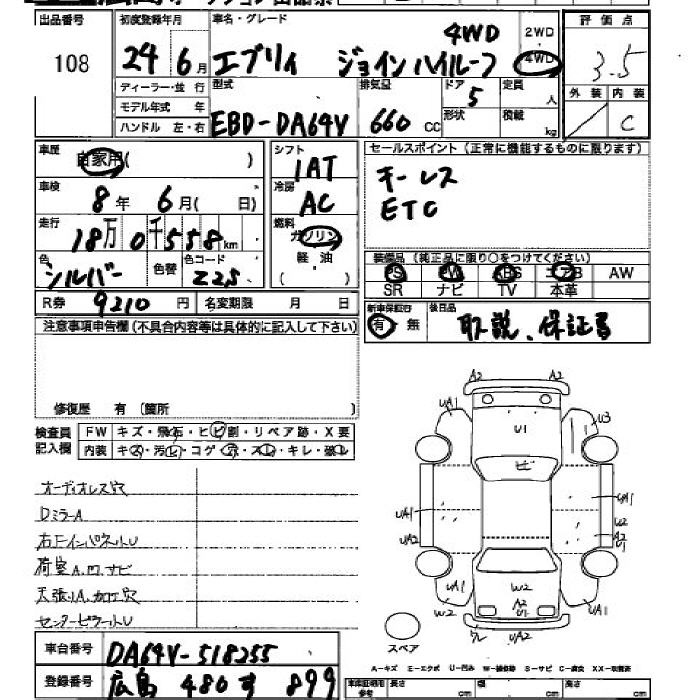 出品番号 初度登録年月 車名・グレード 4WD 2WD 4WD 評価点
108 24年 6月 エブリィ ジョインハイルーフ 3.5
ディーラー・並行 型式 排気量 ドア 5 定員 人 外装 内装
モデル年式 年 形状 積載 kg C
ハンドル 左・右 EBD-DA64V 660 CC
車歴 自家用( ) シフト 1AT セールスポイント(正常に機能するものに限ります)
車検 8年 6月( 日) 冷房 AC キーレス
ETC
走行 18万0千558km 燃料 ガソリン
軽油
( )
色 シルバー 色替 色コード Z2S 装備品(純正品に限り○をつけてください)
PS PW ABS エアB AW
SR ナビ TV 本革
R券 9210円 名変期限 月 日 新車保証書 有 無 後日品 取説、保証書
注意事項申告欄(不具合内容等は具体的に記入して下さい)
修復歴 有(箇所 )
検査員 FW キズ・飛石・ヒビ割・リペア跡・X要
記入欄 内装 キズ・汚れ・コゲ・穴・スレ・キレ・破レ
オーディオレス穴
DミラーA
右下インパネットU
荷室A.凹.サビ
天張りA.加工穴
センターピラートリU
A2 A2
UA1 UA1 U3
U1
ヒビ
UA1 UA1
U2
UA2 A2
U1
UA1 W2 UA1
W2 A2
U1
ワレ UA2
スペア
A-キズ E-エクボ U-凹み W-補修跡 S-サビ C-腐食 XX-取替済
車台番号 DA64V-518255
登録番号 広島 480 す 899
長さ cm 幅 cm 高さ cm